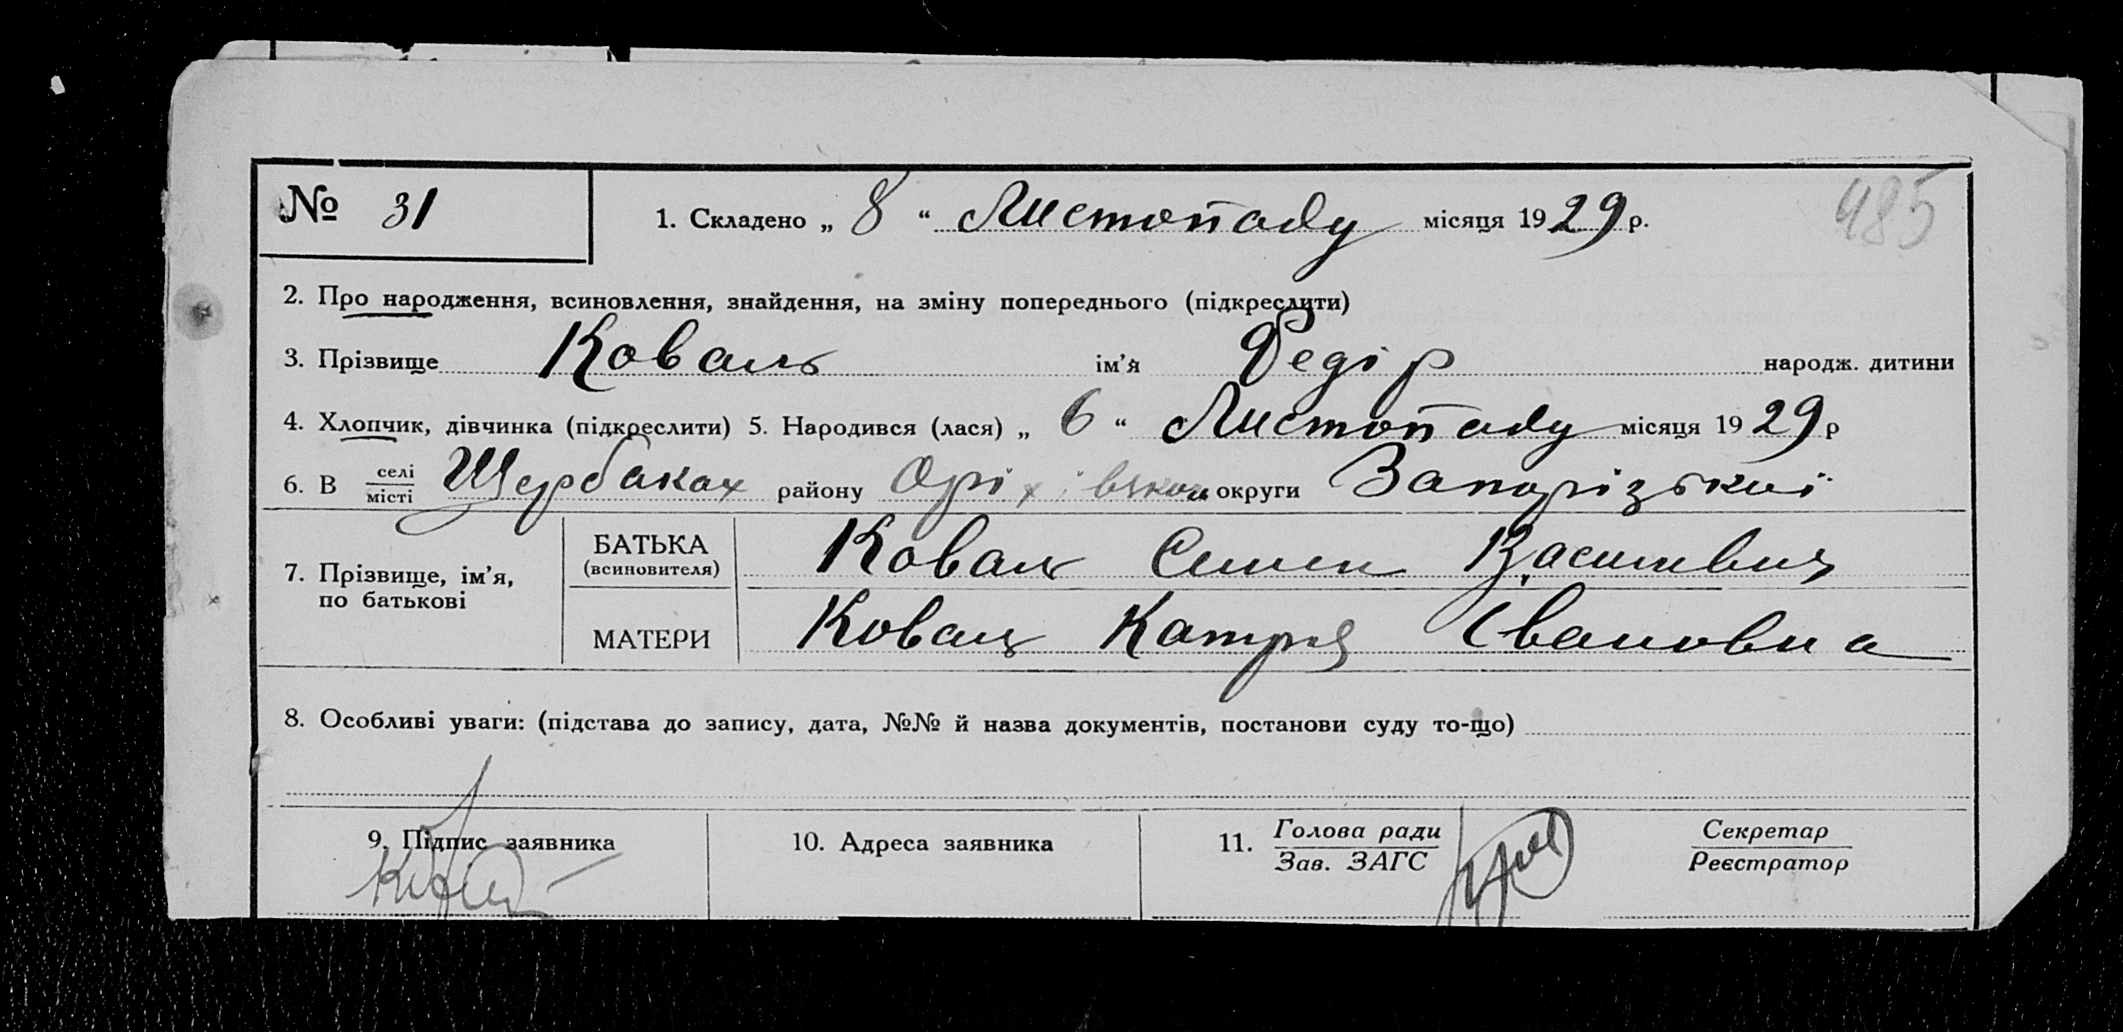 № 31
1. Складено „ 8 “ Листопаду місяця 1929 р.
485
2. Про народження, всиновлення, знайдення, на зміну попереднього (підкреслити)
3. Прізвище Коваль ім’я Федір народж. дитини
4. Хлопчик, дівчинка (підкреслити) 5. Народився (лася) „ 6 “ Листопаду місяця 1929 р
6. В селі/місті Щербаках району Оріхівської округи Запорізької
7. Прізвище, ім’я, по батькові
БАТЬКА (всиновителя) Коваль Семен Василевич
МАТЕРИ Коваль Катря Івановна
8. Особливі уваги: (підстава до запису, дата, №№ й назва документів, постанови суду то-що)
9. Підпис заявника
10. Адреса заявника
11. Голова ради / Зав. ЗАГС
Секретар / Реєстратор